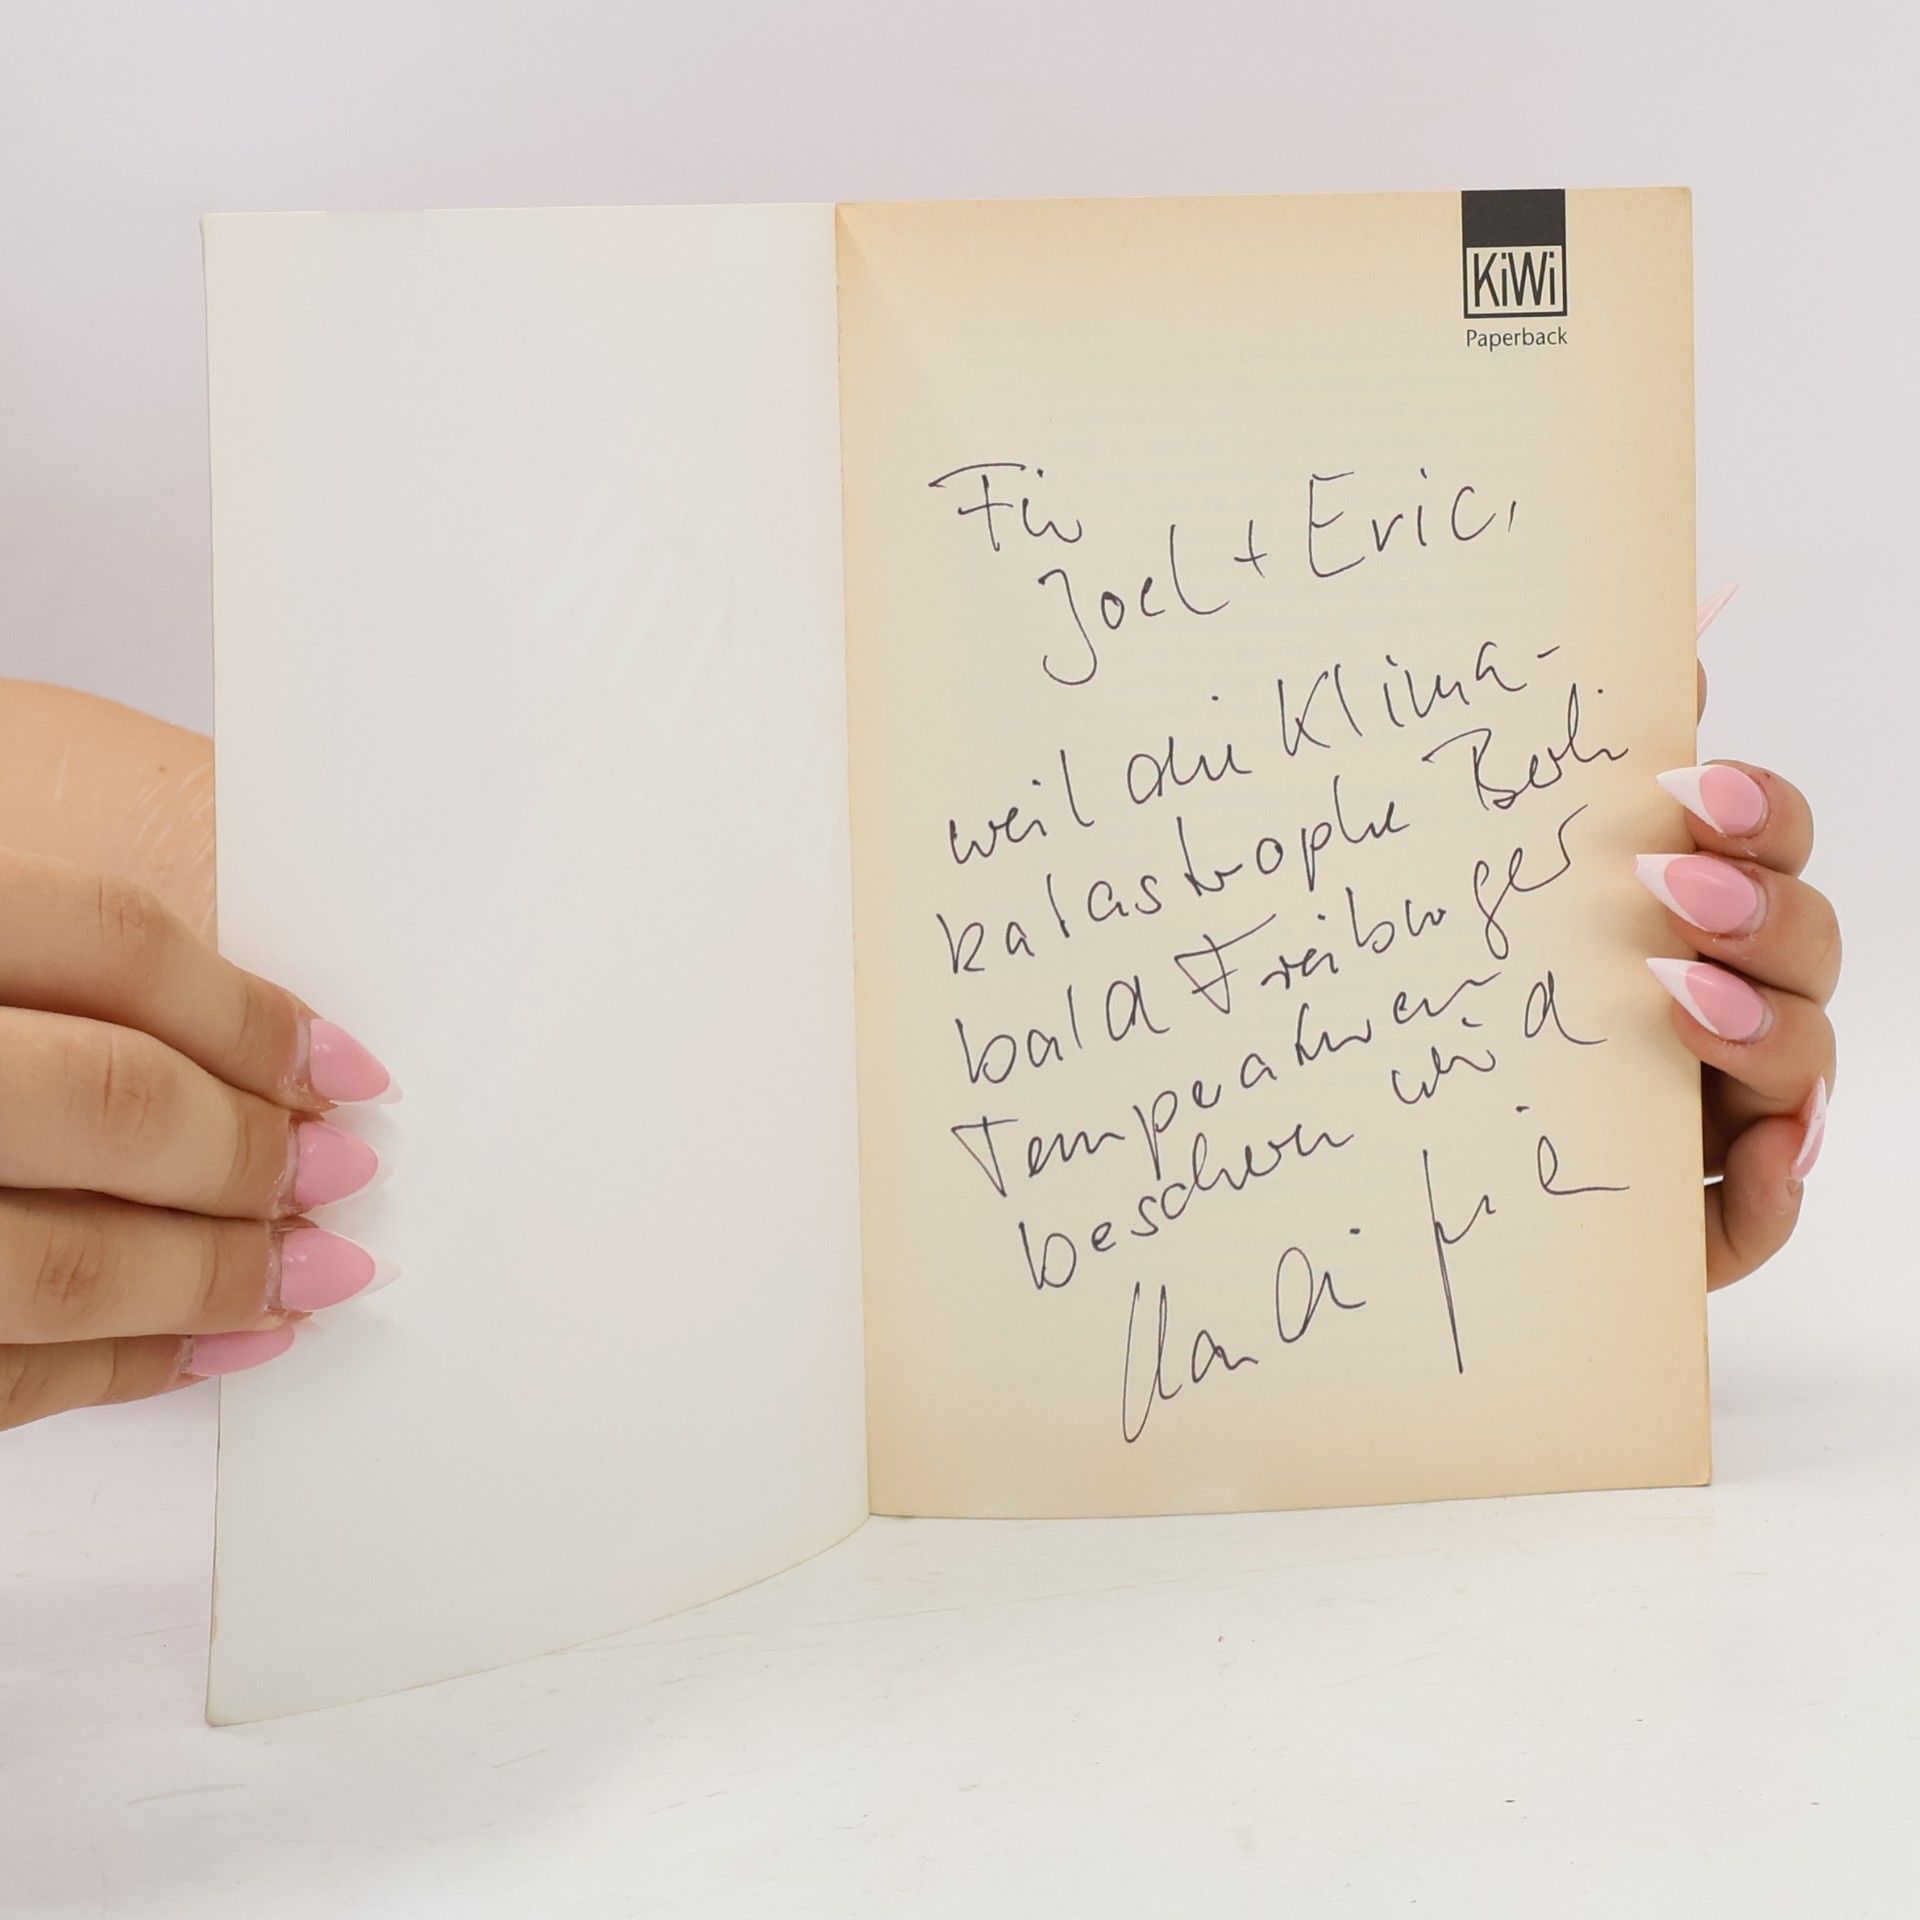 KiWi
Paperback
Für
Joel + Eric,
weil die Klima-
katastrophe Berlin
bald Freiburger
Temperaturen
bescheren wird